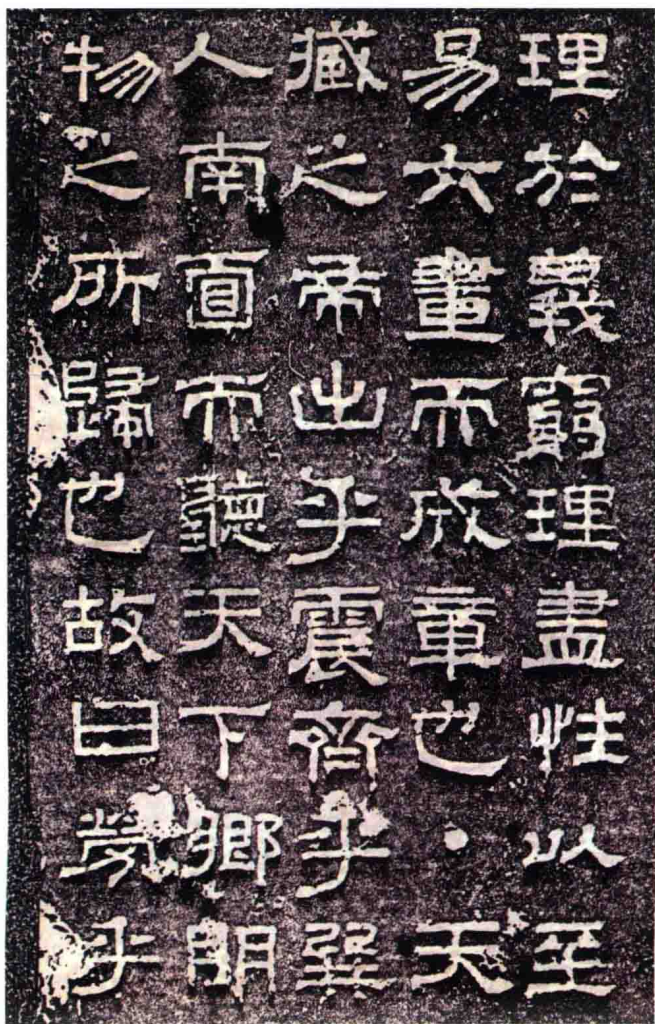 理於義窮理盡性以至
易六畫而成章也・天
藏之帝出乎震齊乎巽
人南面而聽天下鄉明
物之所歸也故曰勞乎